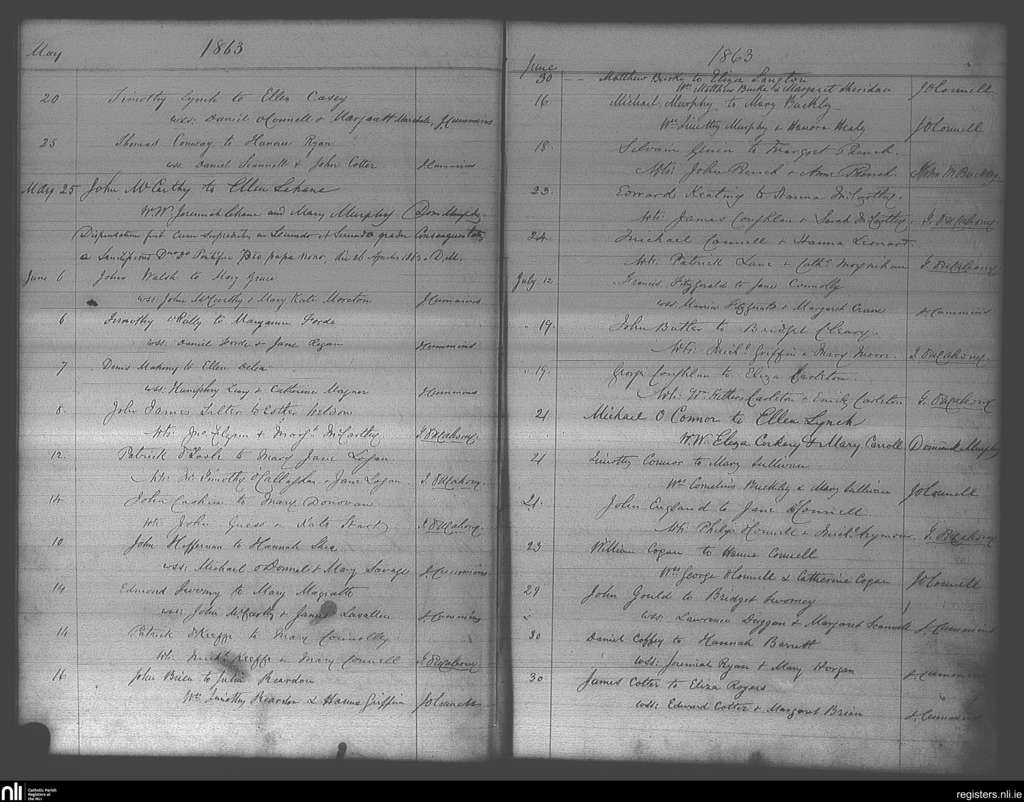 May 1863
20 Timothy Lynch to Ellen Casey
wss: Daniel O'Connell & Margaret J Cummins
25 Thomas Conway to Hanora Ryan
wss Daniel Scannell & John Cotter J Cummins
May 25 John McCarthy to Ellen Lehane
WW Jeremiah Lehane and Mary Murphy (Dom Murphy
(Dispensatum fuit cum in Secundo et gradu Consanguitatis
a Sanctissimo Pontifice Pio papa nono, die 26 Aprilis 1863. D.M.
June 6 John Walsh to Mary Grace
wss John McCarthy & Mary Kate Moreton J Cummins
6 Timothy O'Kelly to Maryanne Forde
wss Daniel Forde & Jane Ryan J Cummins
7 Denis Mahony to Ellen
wss Humphry Leary & Catherine Magner J Cummins
8 John James Salter to Esther Weldon
Wts: Jno. Flynn & Margt. McCarthy J OMahony
12 Patrick to Mary Jane Logan
Wts: Timothy O'Callaghan & Jane Logan J OMahony
14 John to Mary Donovan
Wts: John Guess & Kate J OMahony
10 John Heffernan to Hannah Shea
wss. Michael O'Donnell & Mary Savage J Cummins
14 Edmond to Mary Magrath
wss: John McCarthy & Lavallen J Cummins
14 Patrick O'Keeffe to Mary Connolly
Wts: Michl. Keeffe & Mary Connell J OMahony
16 John Brien to Julia Reardon
Ws. Timothy Reardon & Hanna Griffin J OConnell
June 1863
30 Matthew Burke to Eliza Langton
Ws. Matthew Burke & Margaret Sheridan J OConnell
16 Michael Murphy to Mary Buckly
Ws. Timothy Murphy & Hanora Healy J OConnell
18 to Margaret
Wts: John & Anne
23 Edward Keating to Hanna McCarthy.
Wts: James Coughlan & Sarah McCarthy. J. OMahony
24 Michael Connell & Hanna
Wts: Patrick Lane & Cathe. Moynihan J. OMahony
July 12 Francis Fitzgerald to Jane Connolly
wss Fitzgerald & Margaret J Cummins
19. John Butler to Bridget Cleary.
Wts: Michl. Griffin & Mary Moore. J. OMahony
19. George Coughlan to Eliza Carleton.
Wts: Carleton & Emily Carleton J. OMahony
21 Michael O Connor to Ellen Lynch
WW. Eliza Corkery & Mary Carroll (Dominick Murphy
21 Timothy Connor to Mary Sullivan
Ws. Cornelius Buckley & Mary Sullivan J OConnell
21. John England to Jane
Wts: Philip & Michl. Seymour. J. OMahony
23 William Cogan to Hanna Connell
Wss George & Catherine Cogan J OConnell
29 John Gould to Bridget Twomey
wss. Lawrence Duggan & Margaret Scannell J. Cummins
30 Daniel Coffey to Hannah Barrett
wss. Jeremiah Ryan & Mary Horgan J. Cummins
30 James Cotter to Eliza Rogers
wss: Edward Cotter & Margaret Brien J. Cummins
nli Catholic Parish Registers at the NLI
registers.nli.ie